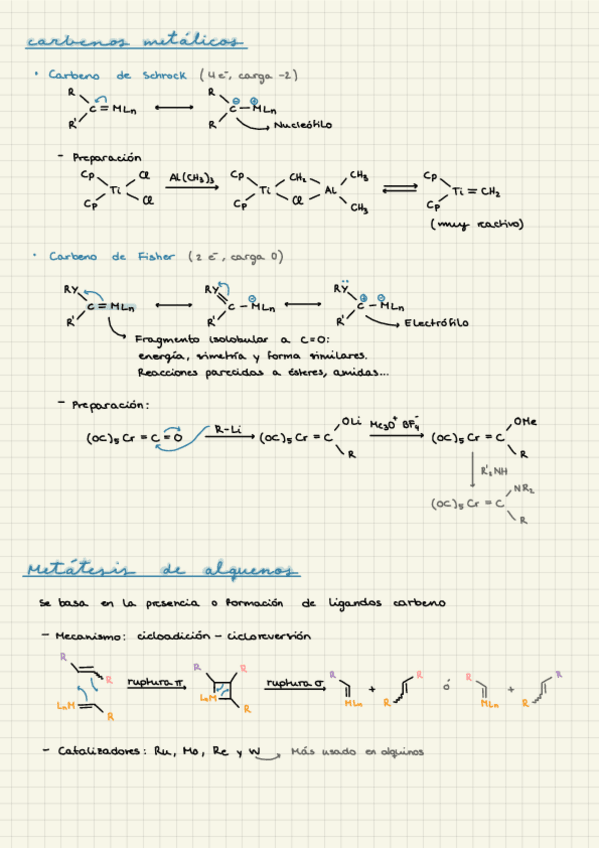 carbenos metálicos
· Carbeno de Schrock (4 e⁻, carga -2)
R R
C = MLn ⟷ C⊖ — M⊕Ln
R' R → Nucleófilo
- Preparación
Cp Cl Al(CH₃)₃ Cp CH₂ CH₃ Cp
Ti Ti Al Ti = CH₂
Cp Cl Cp Cl CH₃ Cp
(muy reactivo)
· Carbeno de Fisher (2 e⁻, carga 0)
RY RY RY
C = MLn ⟷ C — M⊖Ln ⟷ C⊕ — M⊖Ln
R' R' R' → Electrófilo
Fragmento isolobular a C=O:
energía, simetría y forma similares.
Reacciones parecidas a ésteres, amidas...
- Preparación:
OLi Me₃O⁺ BF₄⁻ OMe
(OC)₅Cr = C = O R-Li (OC)₅Cr = C (OC)₅Cr = C
R R
R'₂NH
NR₂
(OC)₅Cr = C
R
Metátesis de alquenos
Se basa en la presencia o formación de ligandos carbeno
- Mecanismo: cicloadición - ciclorreversión
R R R R R R R
ruptura π ruptura σ + ó +
LnM R LnM R MLn R MLn R
- Catalizadores: Ru, Mo, Re y W → Más usado en alquinos